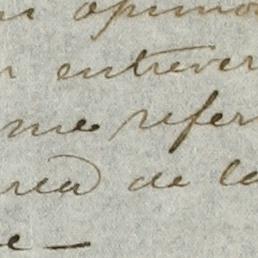 n opinio
r entrever
me refer
rca de la
e —